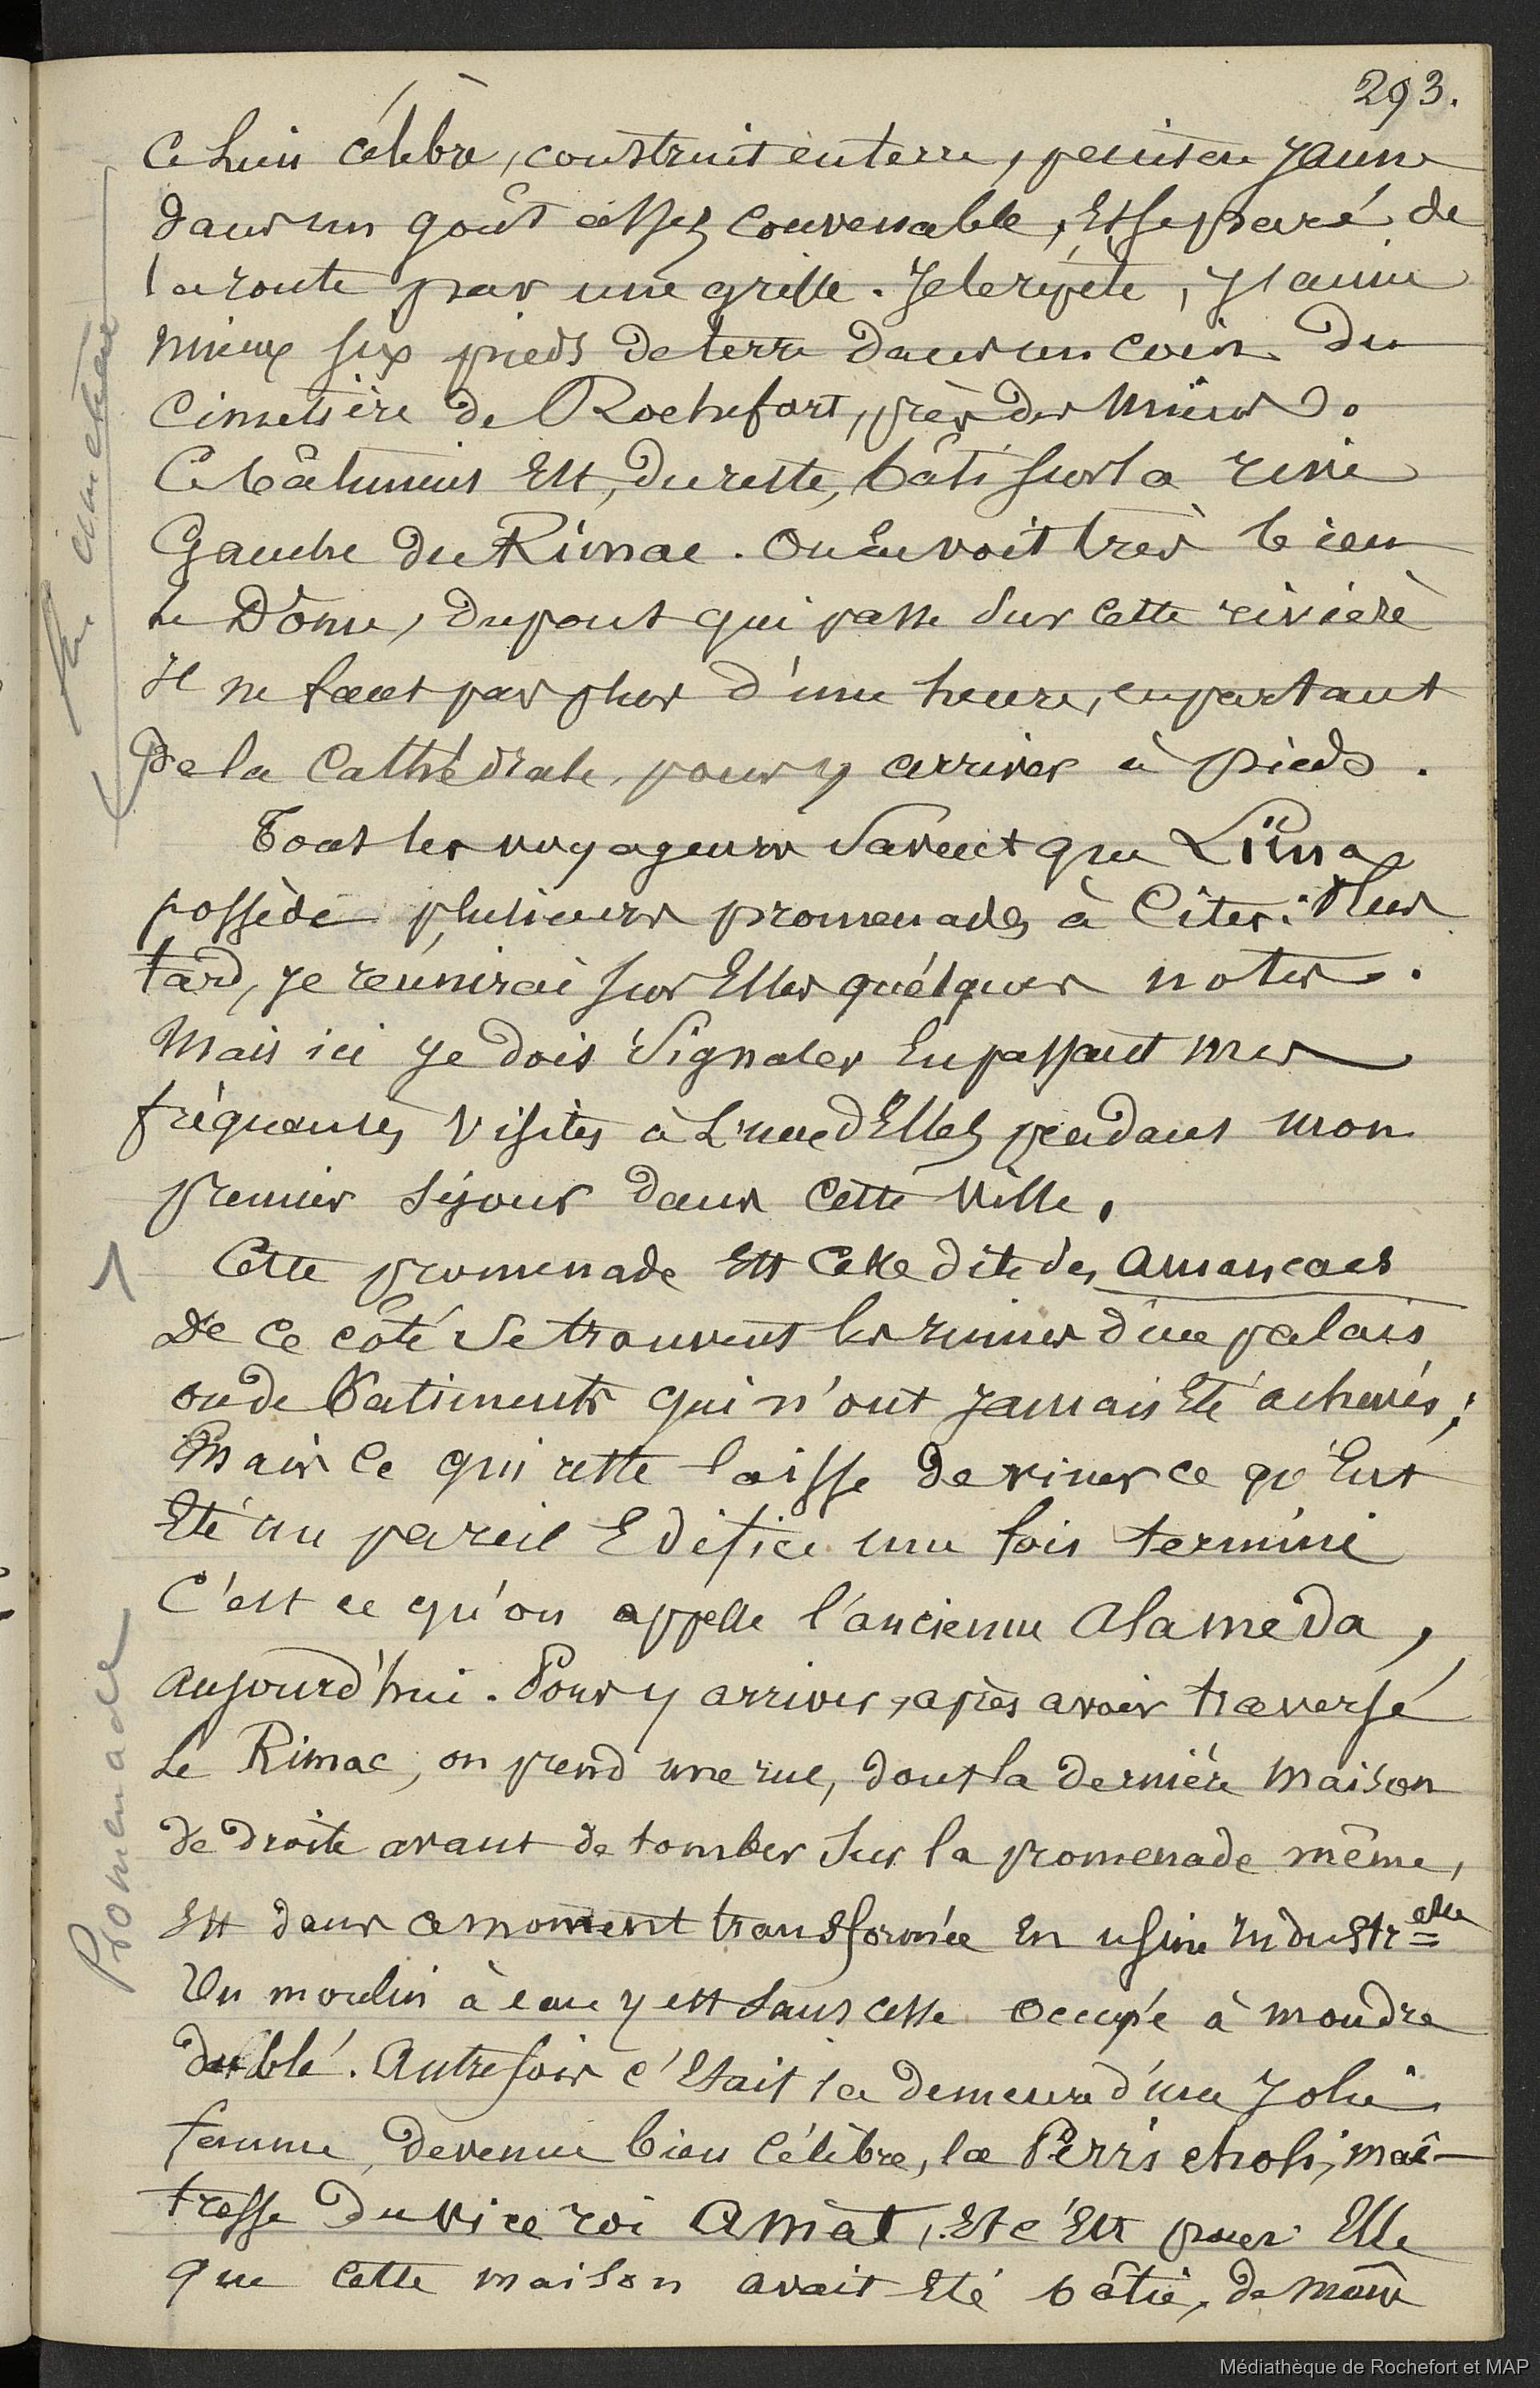 293.
Ce lieu célèbre, construit en terre, peint en jaune
dans un goût assez convenable, est separé de
la route par une grille. Je le répète, j'aime
mieux six pieds de terre dans un coin du
Cimetière de Rochefort, près des miens.
Ce bâtiment est, du reste, bâti sur la rive
Gauche du Rimac. On en voit très bien
le Dôme, du pont qui passe sur cette rivière
Il ne faut pas plus d'une heure, en partant
De la Cathédrale, pour y arriver à pieds.
Tous les voyageurs savent que Lima
possède plusieurs promenades à citer: Plus
tard, je réunirai sur Elles quelques notes.
Mais ici je dois signaler en passant mes
fréquentes visites à L'une d'Elles pendant mon
premier séjour dans cette ville.
Cette promenade est celle dite des Amancaes
De ce côté se trouvent les ruines d'un palais
ou de Batiments qui n'ont jamais été achevés;
Mais ce qui reste laisse deviner ce qu'Eut
Eté un pareil Edifice une fois terminé
C'est ce qu'on appelle l'ancienne Alameda,
aujourd'hui. Pour y arriver, après avoir traversé
Le Rimac, on prend une rue, dont la dernière maison
de droite avant de tomber sur la promenade même,
Est dans ce moment transformée en usine industr=elle
Un moulin à eau y est sans cesse occupé à moudre
du blé. Autrefois c'Etait la demeure d'une jolie
femme, devenue bien célèbre, la Perris choli, maî-
tresse du vice roi Amat, Et c'Est pour Elle
que cette maison avait Eté bâtie, de même
Promenade
Médiathèque de Rochefort et MAP